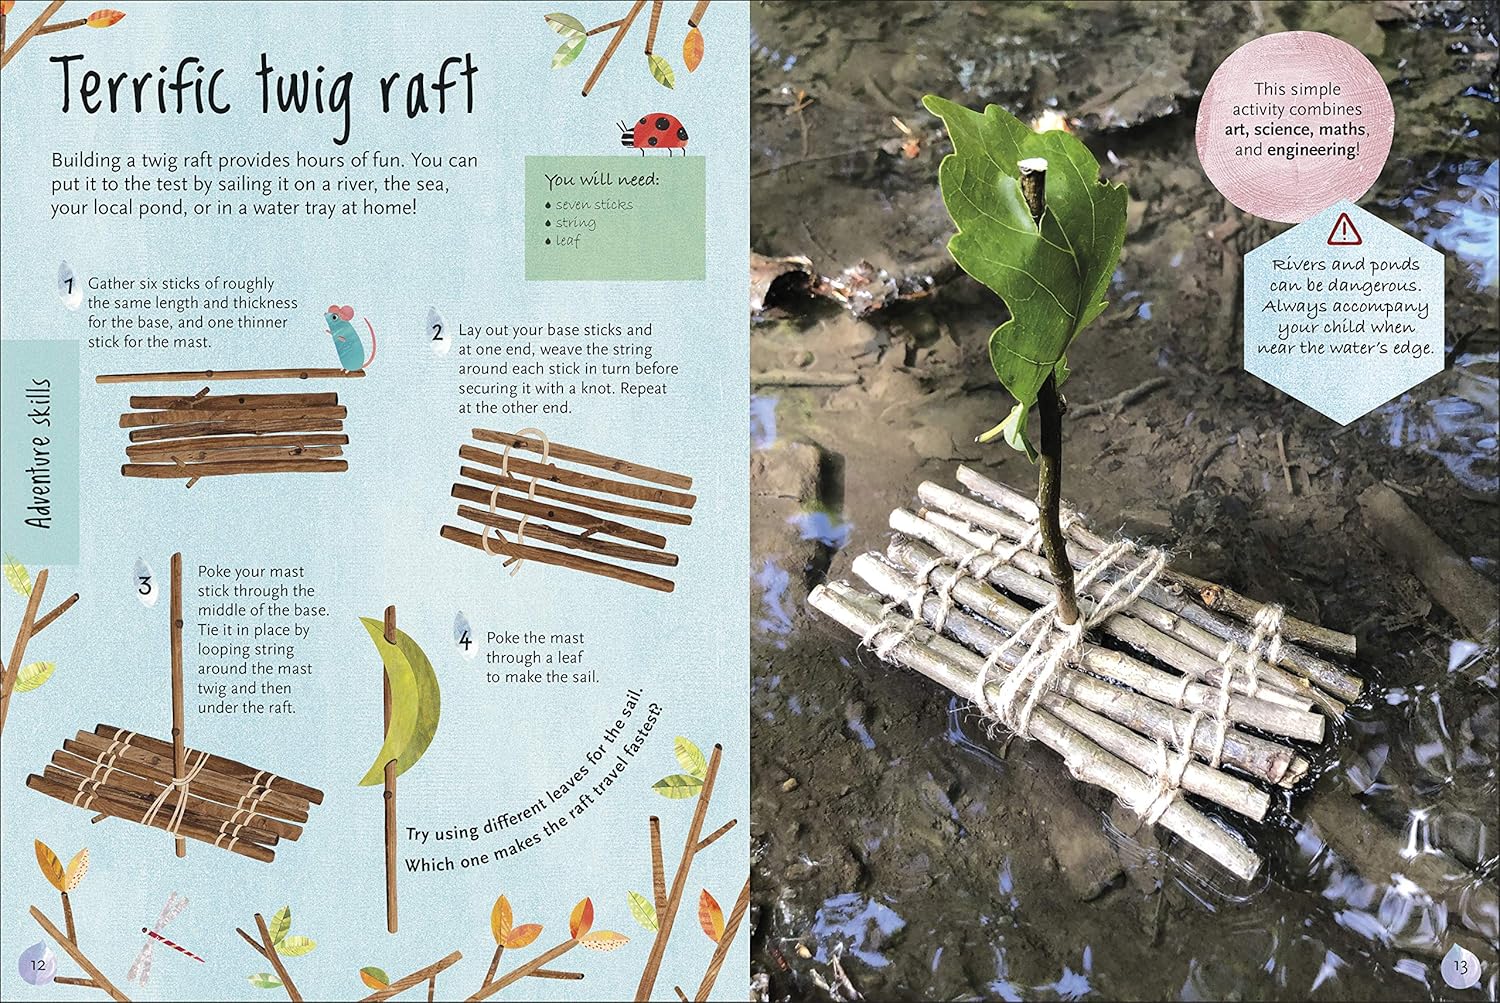 Terrific twig raft
Building a twig raft provides hours of fun. You can
put it to the test by sailing it on a river, the sea,
your local pond, or in a water tray at home!
You will need:
• seven sticks
• string
• leaf
1
Gather six sticks of roughly
the same length and thickness
for the base, and one thinner
stick for the mast.
2
Lay out your base sticks and
at one end, weave the string
around each stick in turn before
securing it with a knot. Repeat
at the other end.
Adventure skills
3
Poke your mast
stick through the
middle of the base.
Tie it in place by
looping string
around the mast
twig and then
under the raft.
4
Poke the mast
through a leaf
to make the sail.
Try using different leaves for the sail.
Which one makes the raft travel fastest?
12
This simple
activity combines
art, science, maths,
and engineering!
Rivers and ponds
can be dangerous.
Always accompany
your child when
near the water's edge.
13